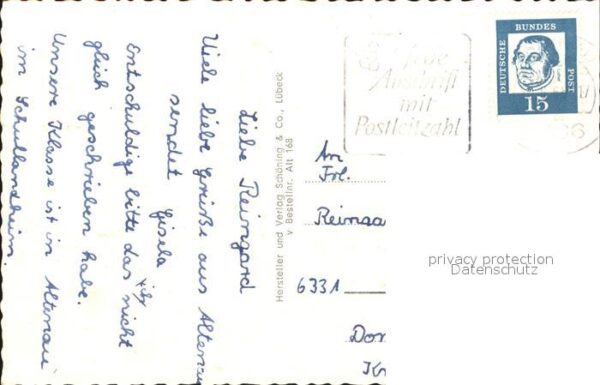 Liebe Reingard
Viele liebe Grüße aus Altenau
sendet Gisela
Entschuldige bitte das nicht
ich
gleich geschrieben habe.
Unsere Klasse ist in Altenau
im Schullandheim.
Hersteller und Verlag Schöning & Co., Lübeck
v Bestellnr. Alt 168
Anschrift
mit
Postleitzahl
DEUTSCHE
BUNDES
POST
15
An
Frl.
6331
Dor
Kr
privacy protection
Datenschutz